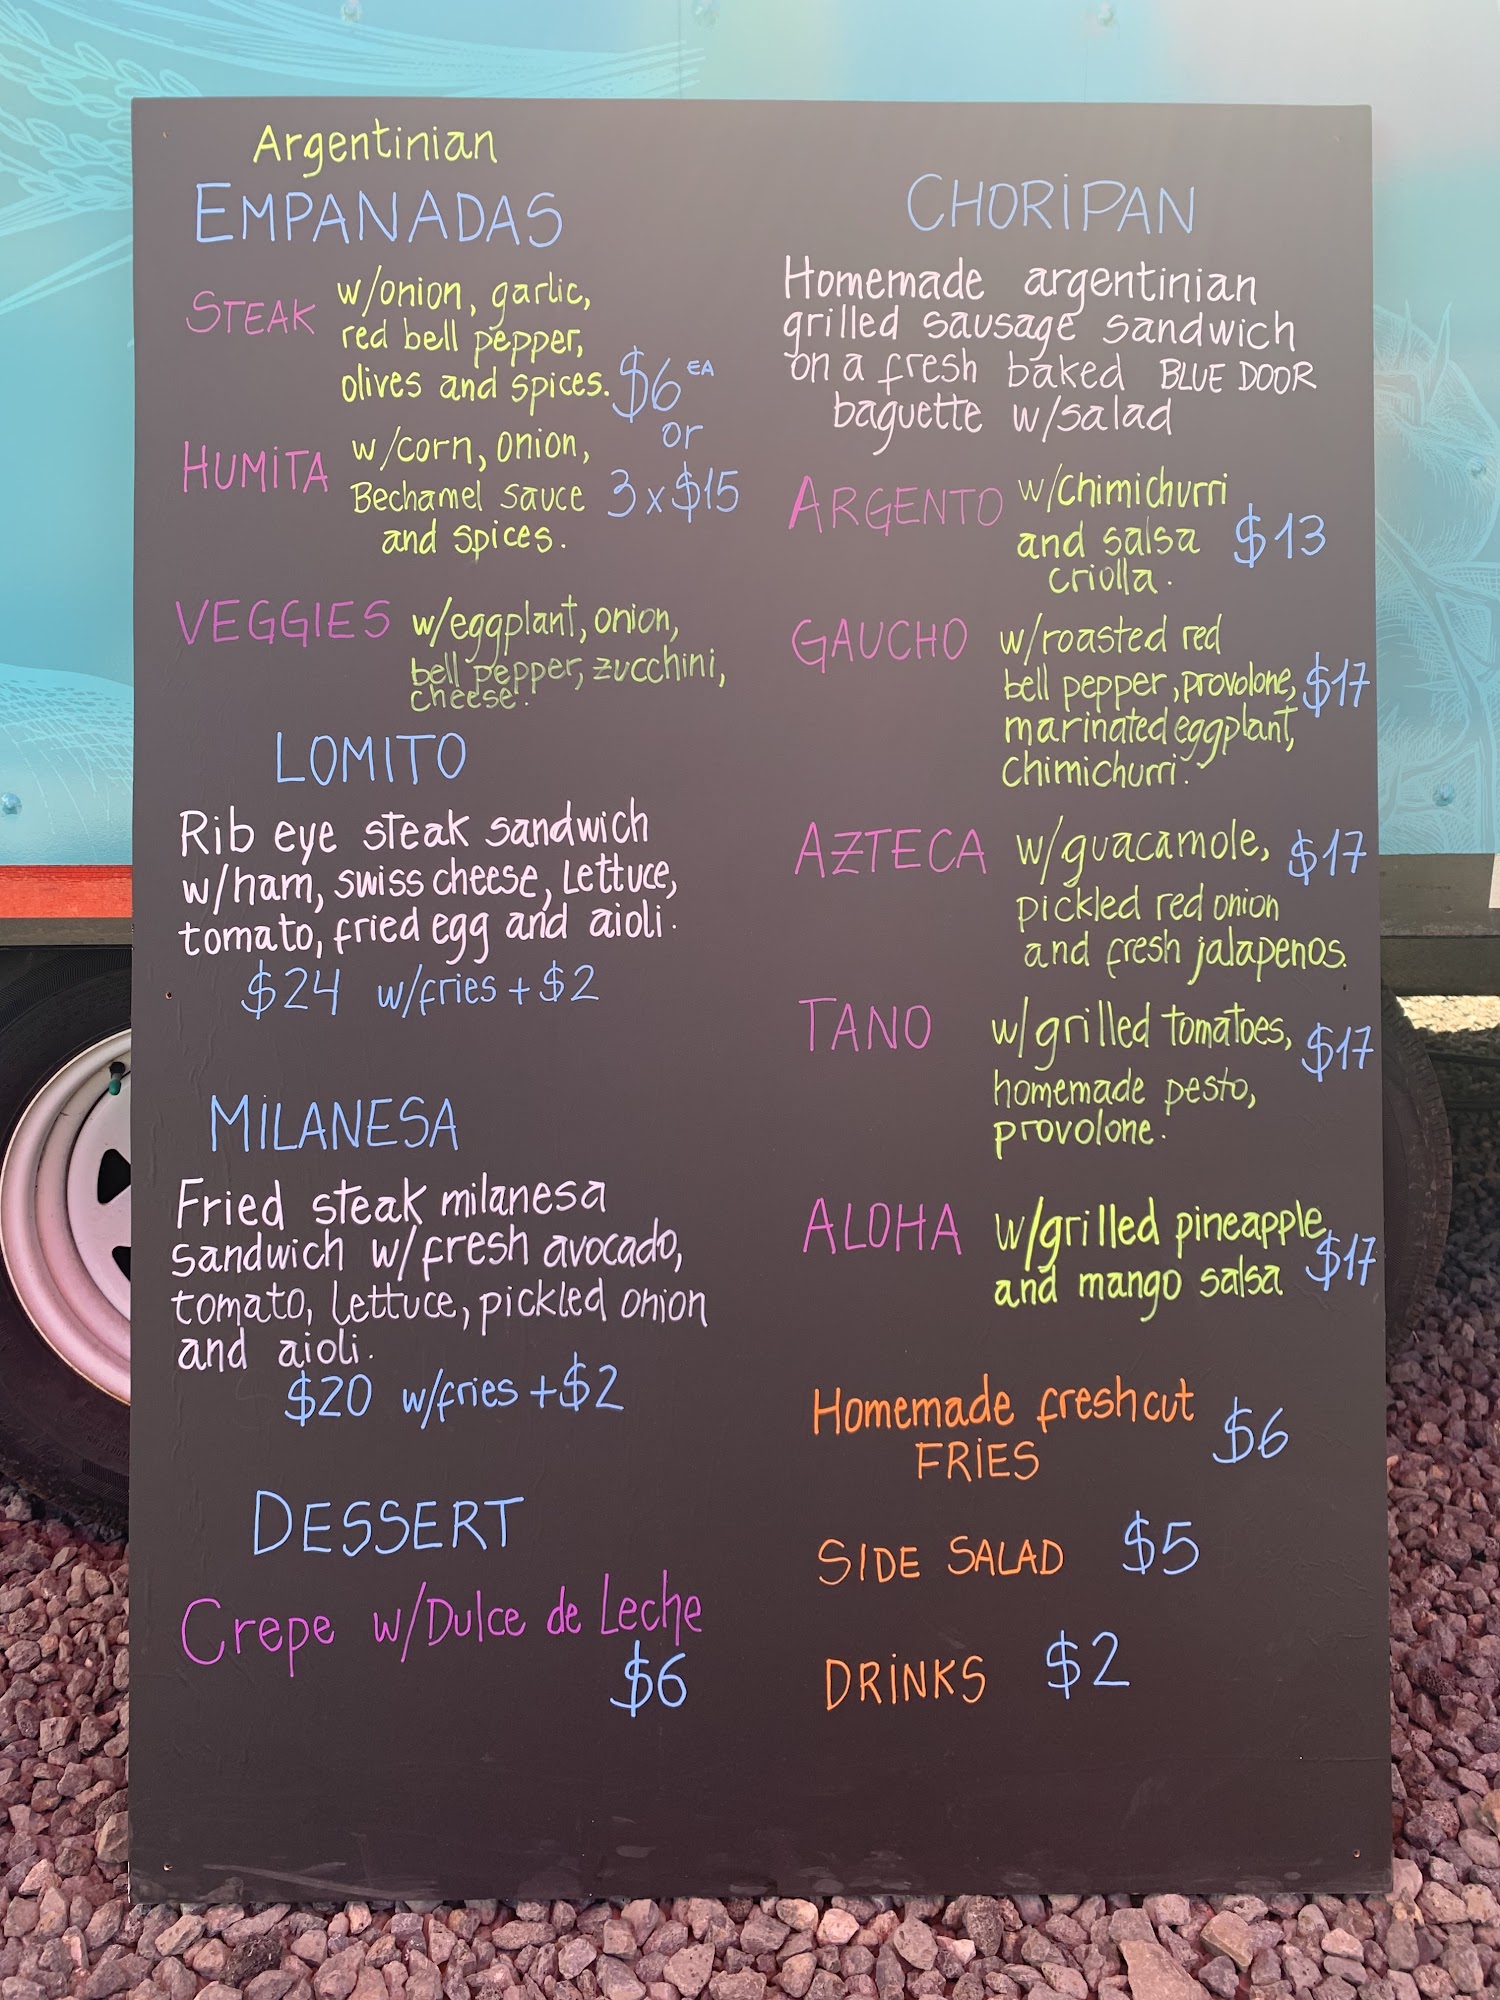 Argentinian
EMPANADAS
STEAK w/onion, garlic,
red bell pepper,
olives and spices. $6 EA
or
HUMITA w/corn, onion,
Bechamel sauce 3 x $15
and spices.
VEGGIES w/eggplant, onion,
bell pepper, zucchini,
cheese.
LOMITO
Rib eye steak sandwich
w/ham, swiss cheese, Lettuce,
tomato, fried egg and aioli.
$24 w/fries + $2
MILANESA
Fried steak milanesa
sandwich w/fresh avocado,
tomato, lettuce, pickled onion
and aioli.
$20 w/fries + $2
DESSERT
Crepe w/Dulce de Leche
$6
CHORIPAN
Homemade argentinian
grilled sausage sandwich
on a fresh baked BLUE DOOR
baguette w/salad
ARGENTO w/chimichurri
and salsa $13
criolla.
GAUCHO w/roasted red
bell pepper, provolone, $17
marinated eggplant,
chimichurri.
AZTECA w/guacamole, $17
pickled red onion
and fresh jalapenos.
TANO w/grilled tomatoes, $17
homemade pesto,
provolone.
ALOHA w/grilled pineapple
and mango salsa $17
Homemade freshcut
FRIES $6
SIDE SALAD $5
DRINKS $2